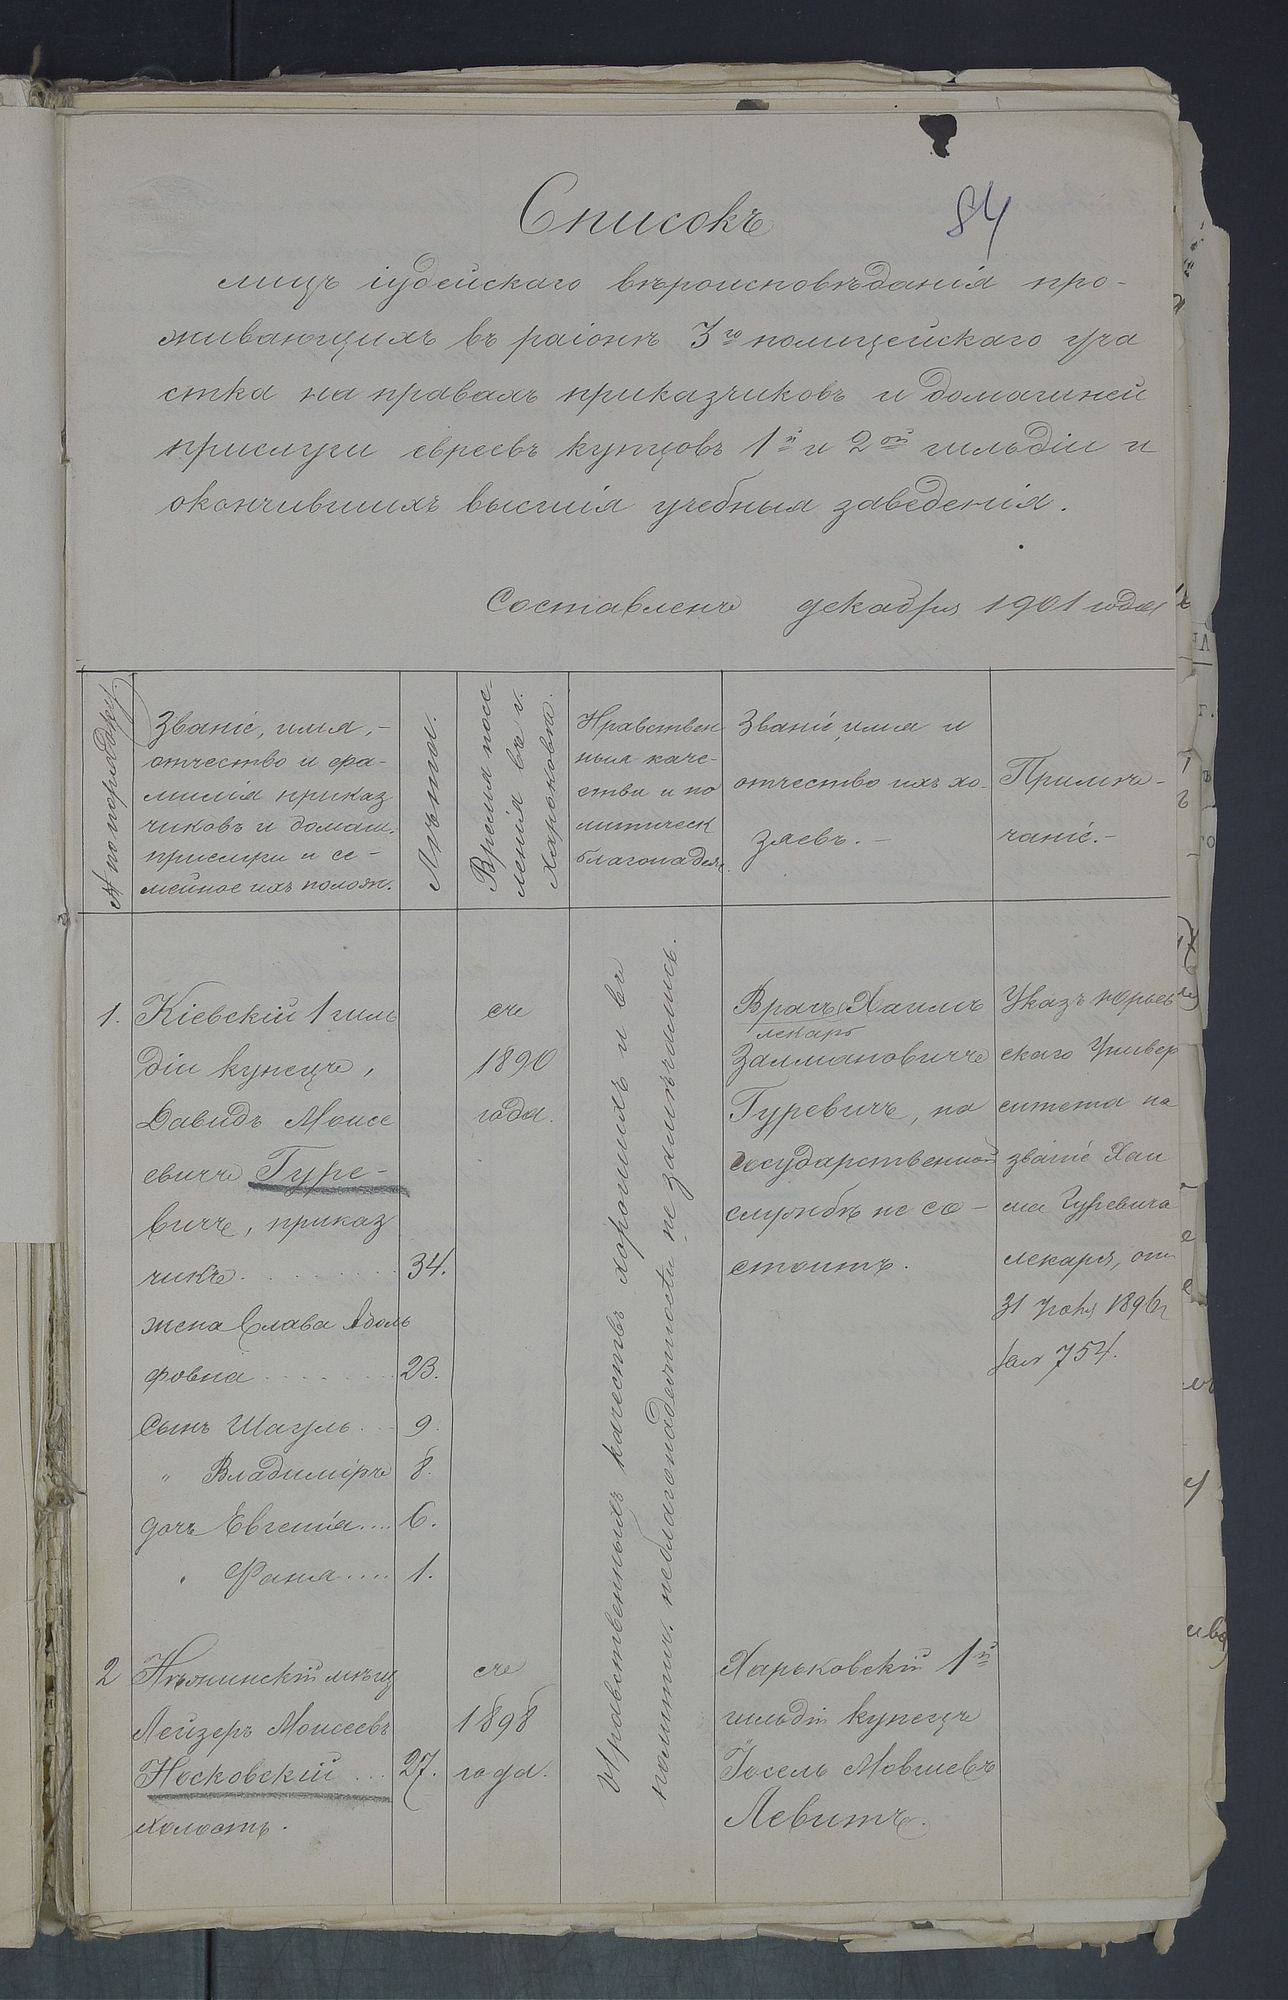 Списокъ
84
лицъ іудейскаго вѣроисповѣданія про-
живающихъ въ раіонѣ 3го полицейскаго уча
стка на правахъ приказчиковъ и домашней
прислуги евреевъ купцовъ 1й и 2ой гильдіи и
окончившихъ высшія учебныя заведенія.
Составленъ декабря 1901 года
№ по порядку.
Званіе, имя,
отчество и фа-
милія приказ
чиковъ и домаш.
прислуги и се-
мейное ихъ полож.
Лѣта.
Время посе-
ленія въ г.
Харьковѣ.
Нравствен
ныя каче-
ства и по
литическ
благонадеж.
Званіе, имя и
отчество ихъ хо-
зяевъ.-
Примѣ-
чаніе.-
1. Кіевскій 1 гиль
діи купецъ,
Давидъ Моисе
евичъ Гуре-
вичъ, приказ
чикъ. 34.
жена Слава Адоль
фовна 23.
Сынъ Шагуль 9.
" Владиміръ 8.
дочь Евгенія.... 6.
" Фаня.... 1.
съ
1890
года.
Нравственныхъ качествъ хорошихъ и въ
политич. неблагонадежности не замѣчались.
Врачъ Хаимъ
лекарь
Залмановичъ
Гуревичъ, на
государственной
службѣ не со-
стоитъ.
Указъ Юрьев
скаго Универ
ситета на
званіе Хаи
ма Гуревича
лекаря, отъ
31 1896г
за № 754.
2 Нѣжинскій мѣщ
Лейзеръ Моисеевъ
Носковскій ... 27.
холостъ.
съ
1898
года.
Харьковскій 1й
гильдіи купецъ
Іосель Мовшевъ
Левитъ.